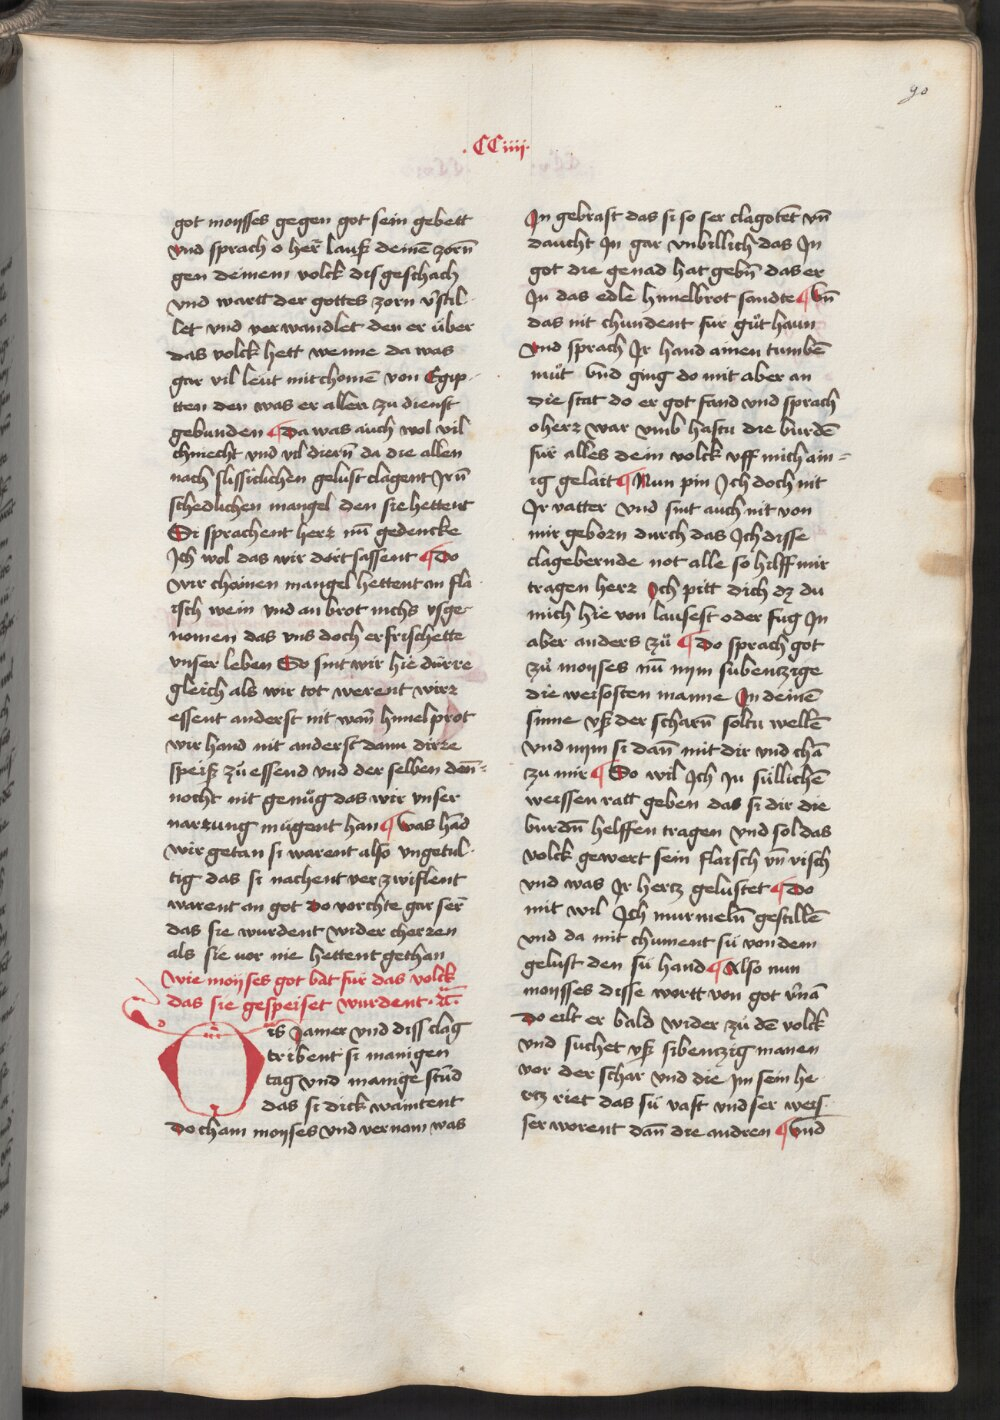 90
.CCiiij.
got moẏsses gegen got sein gebett
vnd sprach o her̄ lausz deinē zorn̄
gen deinem volck dis geschach
vnd wartt der gottes zorn v̄stil-
let vnd verwandlet den er über
das volck hett wenne da was
gar vil leut mit chomē von Egip-
tten den was er allen zu dienst
gebunden ¶ Da was auch wol vil
chnecht vnd vil diern̄ da die allen
nach flissiclichen gelust clagent Irn̄
schedlichen mangel den sie hettent
Si sprachent herz nu̅ gedencke
Ich wol das wir dort sassent ¶ Do
wir chainen mangel hettent an fla
isch wein vnd an brot nichs vsge-
nomen das vns doch erfrischette
vnser leben So sint wir hie dürre
gleich als wir tot werent wirz
essent anderst nit wan̄ himelprot
wir hand nit anderst dann dirze
speisz zů essend vnd der selben den̄=
nocht nit genůg das wir vnser
narzung mügent han ¶ was hād
wir getan si warent also vngetul-
tig das si nachent verzwiflent
warent an got do vorchte gar ser̄
das sie wurdent wider cherzen
als sie vor nie hettent gethan
wie moyses got bat für das volck
das sie gespeiset wurdent
Dis Jamer vnd diss clag
tribent si manigen
tag vnd manige stūd
das si dick waintent
do cham moyses vnd vernam was
In gebrast das si so ser clagotēt vn̄
daucht In gar vnbillich das In
got die genad hat gebn̄ das er
In das edle himelbrot sandte ¶ Vn̄
das nit chundent für gůt haun
vnd sprach Ir hand ainen tumbē
můt vnd ging do mit aber an
die stat do er got fand vnd sprach
o herz war vmb hastu die burdē
für alles dein volck vff mich ain=
ig gelait ¶ Nun pin Ich doch nit
Ir vatter vnd sint auch nit von
mir geborn durch das Ich disse
clagebernde not alle so hilff mir
tragen herz Ich pitt dich dz du
mich hie von lausest oder fug In
aber anders zů ¶ Do sprach got
zů moyses nū nym sübentzige
die weisosten manne In deinē
sinne vsz der scharn̄ soltu wellē
vnd nym si dan̄ mit dir vnd chā
zu mir ¶ So wil Ich In süllichē
weissen ratt geben das si dir die
burdn̄ helffen tragen vnd sol das
volck gewert sein flaisch vn̄ visch
vnd was Ir hertz gelustet ¶ Do
mit wil Ich murmeln̄ gestillē
vnd da mit chument sü von dem
gelust den sü hand ¶ Also nun
moysses disse wortt von got v̄nā
Do eilt er bald wider zů dē volck
vnd suchet vsz sibentzig manen
vor der schar vnd die Im sein he
rtz riet das sü vast vnd ser weis-
ser worent dan̄ die andren ¶ vnd